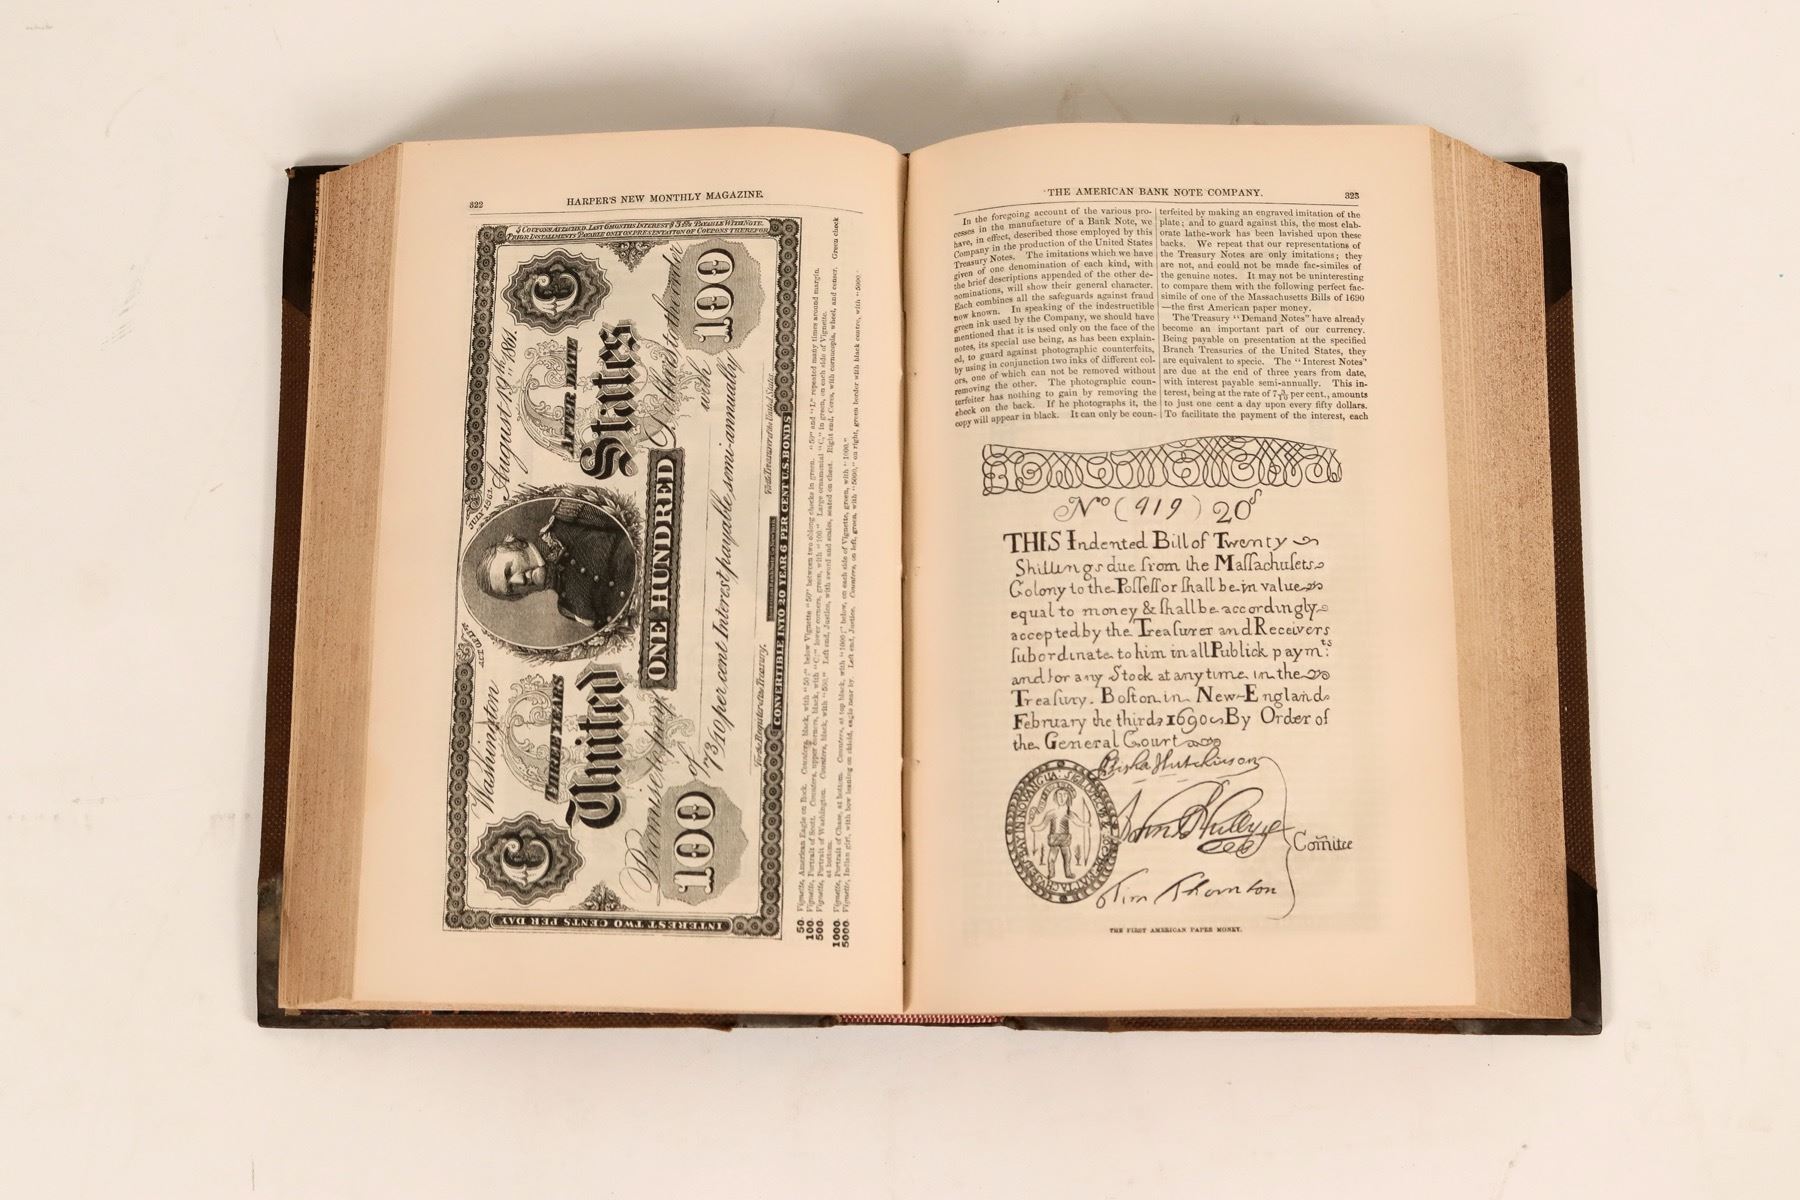 322
HARPER'S NEW MONTHLY MAGAZINE.
5 COUPONS ATTACHED. LAST 6 MONTHS INTEREST $3.65 PAYABLE WITH NOTE.
PRIOR INSTALLMENTS PAYABLE ONLY ON PRESENTATION OF COUPONS THEREFOR
Washington August 19th 1861.
ACT OF
JULY 1861.
C
THREE YEARS
AFTER DATE
C
United States
Promise to pay
ONE HUNDRED
Dollars to the order
100
of
with
100
7 3/10 per cent Interest payable semi-annually
For the Register of the Treasury.
For the Treasurer of the United States.
CONVERTIBLE INTO 20 YEAR 6 PER CENT U.S. BONDS
INTEREST TWO CENTS PER DAY
50. Vignette, American Eagle on Rock. Counters, black, with "50;" below Vignette "50" between two oblong checks in green. "50" and "L" repeated many times around margin.
100. Vignette, Portrait of Scott. Counters, upper corners, black, with "C;" lower corners, green, with "100." Large ornamental "C," in green, on each side of Vignette.
500. Vignette, Portrait of Washington. Counters, black, with "500." Left end, Justice, with sword and scales, seated on chest. Right end, Ceres, with cornucopia, wheel, and censer. Green check
at bottom.
1000. Vignette, Portrait of Chase, at bottom. Counters, at top black, with "1000;" below, on each side of Vignette, green, with "1000."
5000. Vignette, Indian girl, with bow leaning on shield, eagle near by. Left end, Justice. Counters, on left, green, with "5000," on right, green border with black centre, with "5000."
THE AMERICAN BANK NOTE COMPANY.
323
In the foregoing account of the various pro-
cesses in the manufacture of a Bank Note, we
have, in effect, described those employed by this
Company in the production of the United States
Treasury Notes. The imitations which we have
given of one denomination of each kind, with
the brief descriptions appended of the other de-
nominations, will show their general character.
Each combines all the safeguards against fraud
now known. In speaking of the indestructible
green ink used by the Company, we should have
mentioned that it is used only on the face of the
notes, its special use being, as has been explain-
ed, to guard against photographic counterfeits,
by using in conjunction two inks of different col-
ors, one of which can not be removed without
removing the other. The photographic coun-
terfeiter has nothing to gain by removing the
check on the back. If he photographs it, the
copy will appear in black. It can only be coun-
terfeited by making an engraved imitation of the
plate; and to guard against this, the most elab-
orate lathe-work has been lavished upon these
backs. We repeat that our representations of
the Treasury Notes are only imitations; they
are not, and could not be made fac-similes of
the genuine notes. It may not be uninteresting
to compare them with the following perfect fac-
simile of one of the Massachusetts Bills of 1690
—the first American paper money.
The Treasury "Demand Notes" have already
become an important part of our currency.
Being payable on presentation at the specified
Branch Treasuries of the United States, they
are equivalent to specie. The "Interest Notes"
are due at the end of three years from date,
with interest payable semi-annually. This in-
terest, being at the rate of 7 3/10 per cent., amounts
to just one cent a day upon every fifty dollars.
To facilitate the payment of the interest, each
No (919) 20s
THIS Indented Bill of Twenty
Shillings due from the Maſſachuſets
Colony to the Poſſeſſor ſhall be in value
equal to money & ſhall be accordingly
accepted by the Treaſurer and Receivers
ſubordinate to him in all Publick paym:ts
and for any Stock at any time in the
Treaſury. Boſton in New-England
February the third 1690 By Order of
the General Court
Eliſha Hutchinson
John Phillips
Tim Thornton
Comitee
THE FIRST AMERICAN PAPER MONEY.